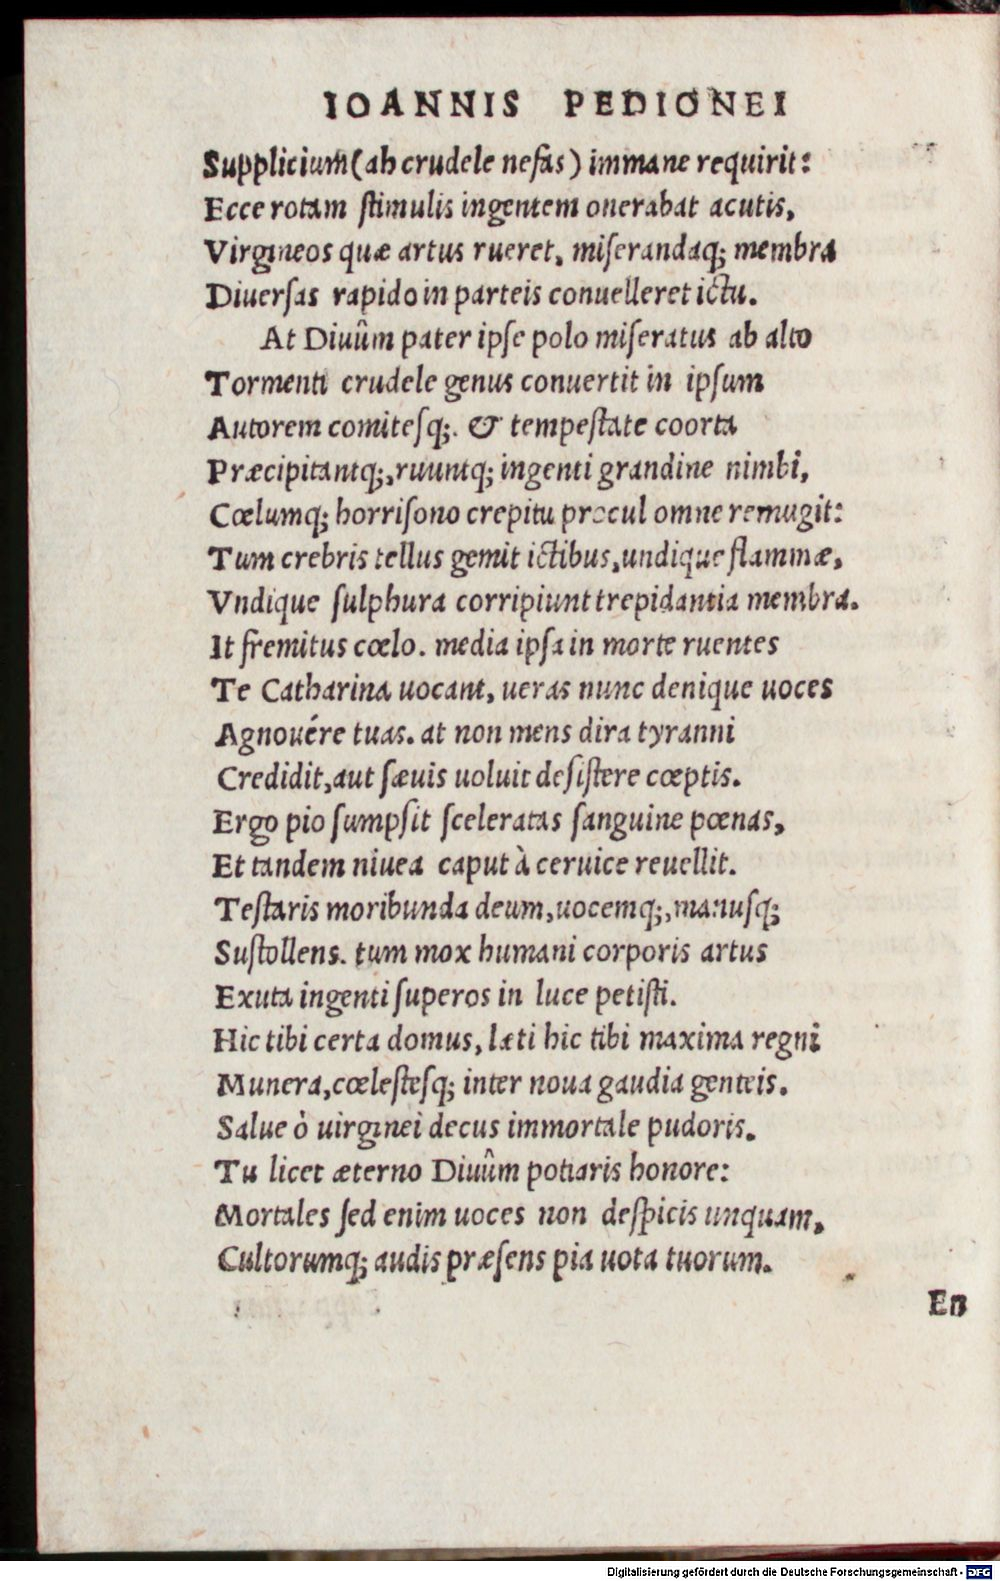 IOANNIS PEDIONEI
Supplicium (ah crudele nefas) immane requirit:
Ecce rotam ſtimulis ingentem onerabat acutis,
Virgineos quæ artus rueret, miſerandaq; membra
Diuerſas rapido in parteis conuelleret ictu.
At Diuûm pater ipſe polo miſeratus ab alto
Tormenti crudele genus conuertit in ipſum
Autorem comiteſq;. & tempeſtate coorta
Præcipitantq;, ruuntq; ingenti grandine nimbi,
Cœlumq; horriſono crepitu procul omne remugit:
Tum crebris tellus gemit ictibus, undique flammæ,
Vndique ſulphura corripiunt trepidantia membra.
It fremitus cœlo. media ipſa in morte ruentes
Te Catharina uocant, ueras nunc denique uoces
Agnouére tuas. at non mens dira tyranni
Credidit, aut ſæuis uoluit deſiſtere cœptis.
Ergo pio ſumpſit ſceleratas ſanguine pœnas,
Et tandem niuea caput à ceruice reuellit.
Teſtaris moribunda deum, uocemq;, manuſq;
Suſtollens. tum mox humani corporis artus
Exuta ingenti ſuperos in luce petiſti.
Hic tibi certa domus, læti hic tibi maxima regni
Munera, cœleſteſq; inter noua gaudia genteis.
Salue ò uirginei decus immortale pudoris.
Tu licet æterno Diuûm potiaris honore:
Mortales ſed enim uoces non deſpicis unquam,
Cultorumq; audis præſens pia uota tuorum.
En
Digitalisierung gefördert durch die Deutsche Forschungsgemeinschaft - DFG